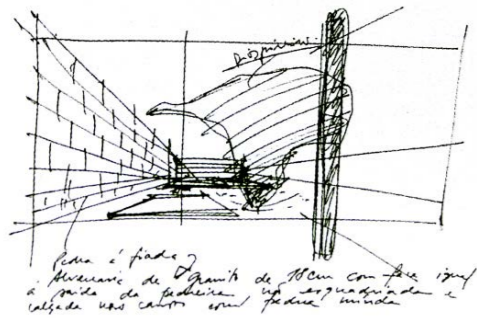 Pedra á fiada
Alvenaria de granito de 18cm com face igual
á saida da pedreira não esquadriada e
calçada nos cantos com pedra miuda